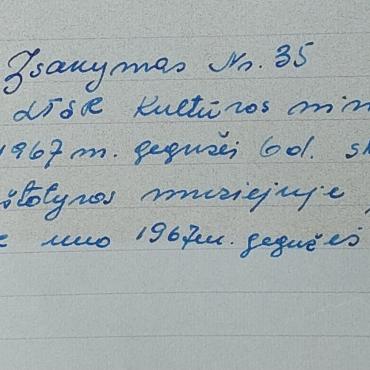 Įsakymas Nr. 35
LTSR Kultūros min
1967 m. gegužės 6 d.
muziejuje
nuo 1967 m. gegužės